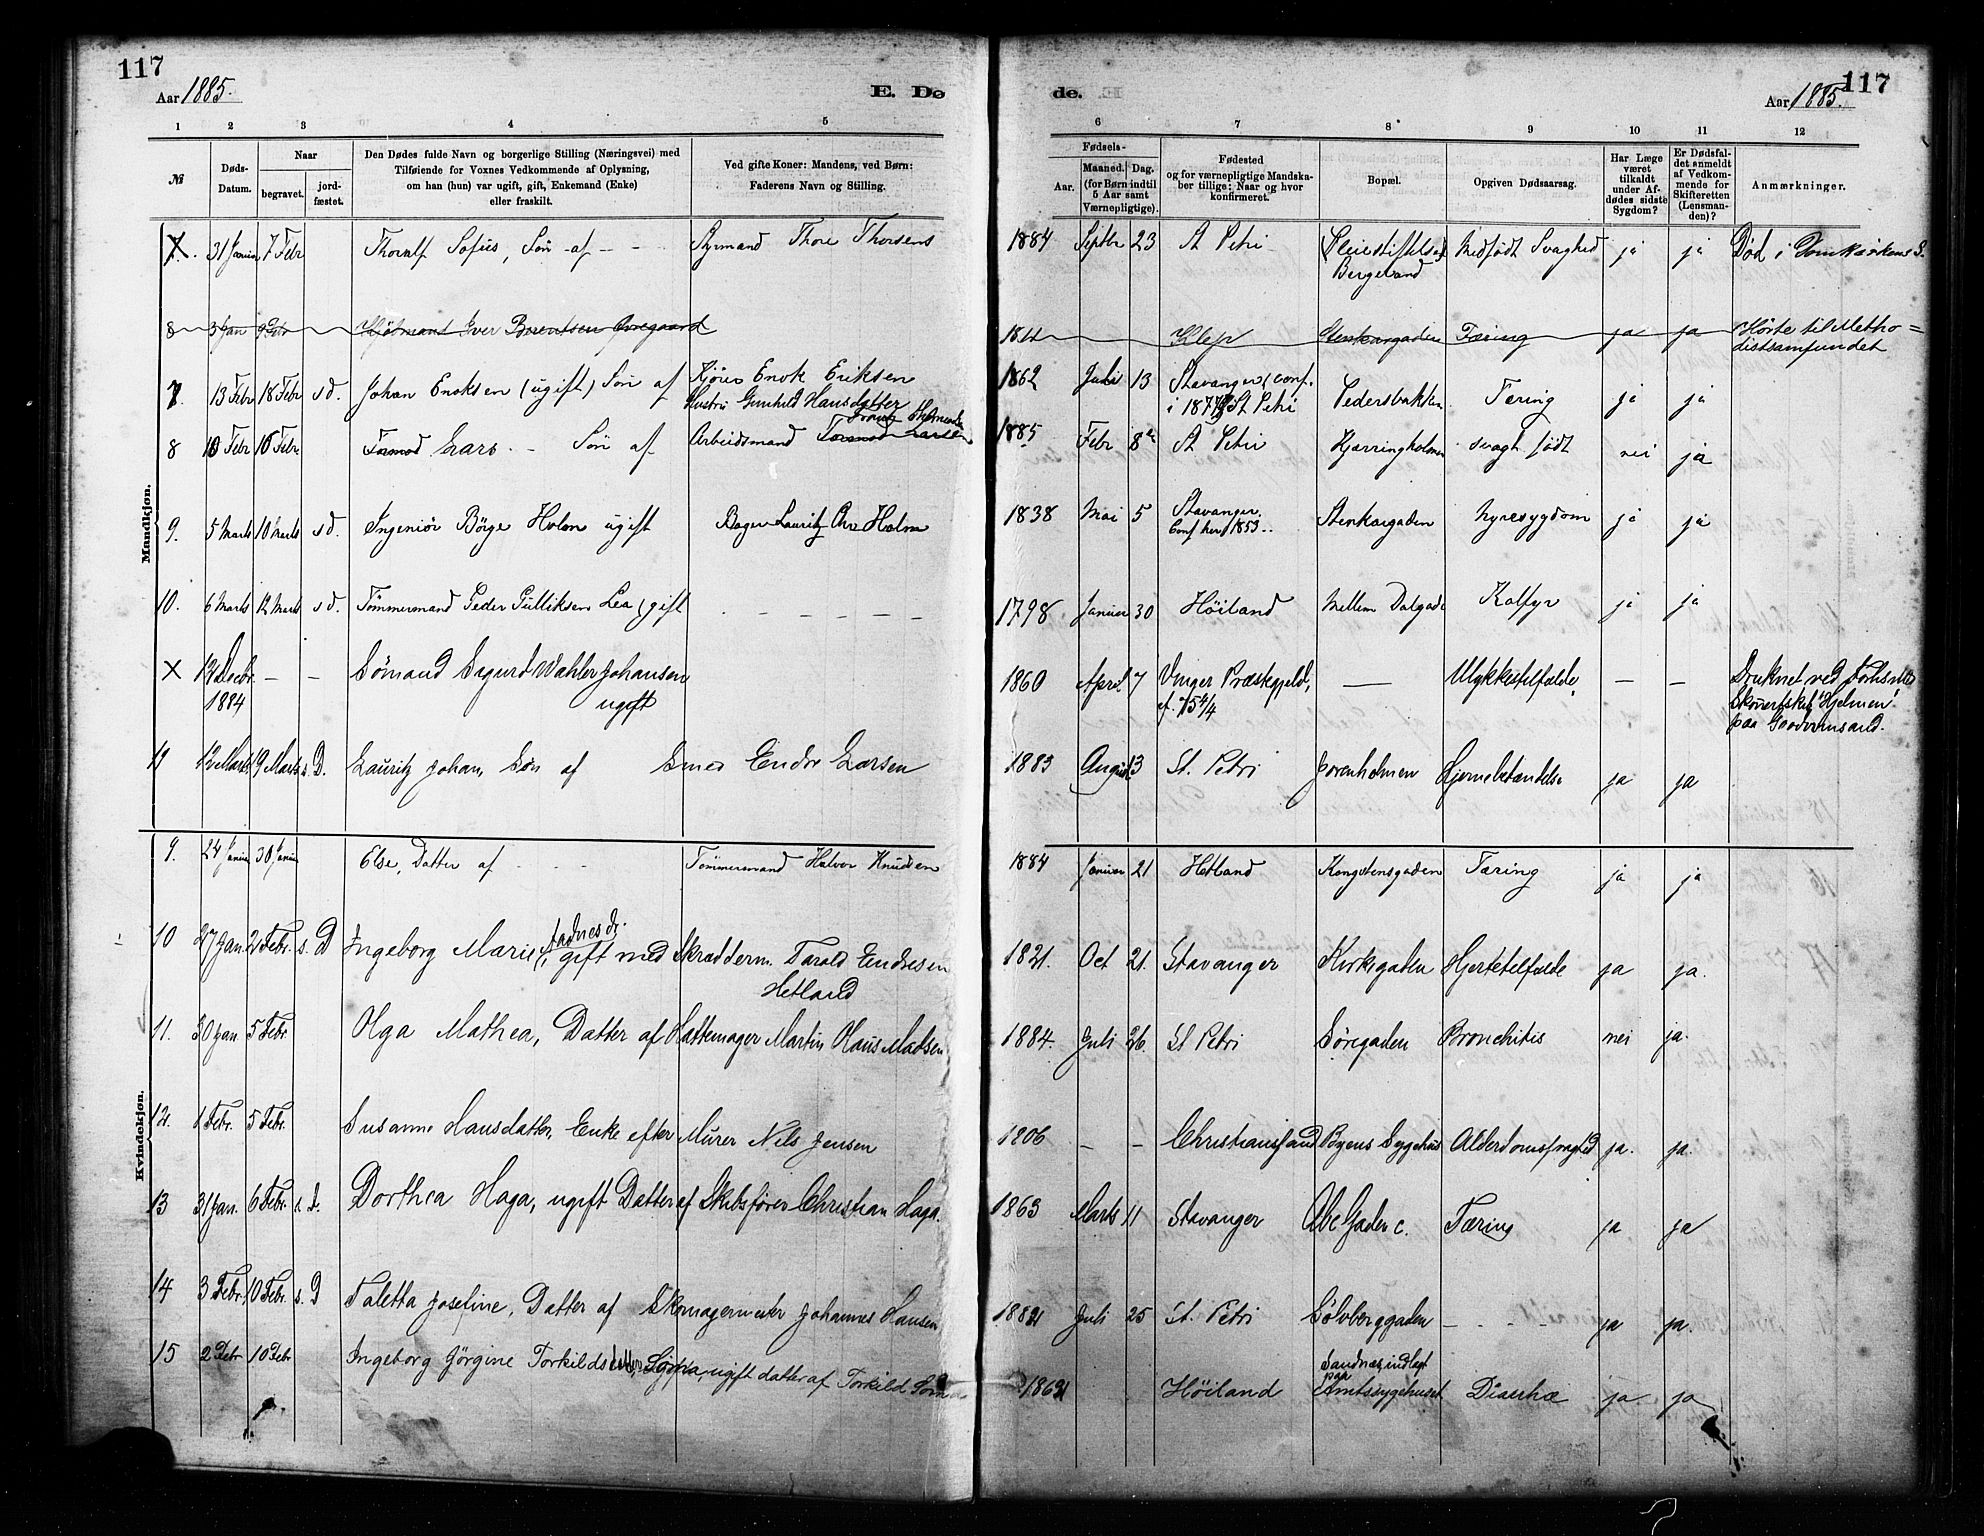 117
Aar 1885.
E. Dø
1 2 3 4 5
№
Døds-
Datum.
Naar
begravet.
jord-
fæstet.
Den Dødes fulde Navn og borgerlige Stilling (Næringsvei) med
Tilføiende for Voxnes Vedkommende af Oplysning,
om han (hun) var ugift, gift, Enkemand (Enke)
eller fraskilt.
Ved gifte Koner: Mandens, ved Børn:
Faderens Navn og Stilling.
Mandkjøn.
31 Januar 7 Febr Thoralf Sofus, Søn af - - Styrmand Thore Thorsens
8 3 Jan 9 Febr Kjøbmand Iver Berentsen Øvregaard
7. 13 Febr 18 Febr sd. Johan Enoksen (ugift) Søn af Kjører Enok Eriksen
Hustru Gunhild Hansdatter
8 10 Febr 16 Febr Tormod Lars - Søn af Arbeidsmand Tormod Larsen
9. 5 Marts 10 Marts sd. Ingeniør Börge Holm ugift Bager Lauritz Chr Holm
10. 6 Marts 12 Marts sd. Tømmermand Peder Gulliksen Lea, gift - - - - -
X 12 Decbr. - - Sømand Sigurd Wahler Johansen
1884 ugift
11 12 Marts 19 Marts s. D. Lauritz Johan, Søn af Smed Endre Larsen
Kvindekjøn.
9. 24 Januar 30 Januar Else, Datter af - - Tømmermand Halvor Knudsen
10 27 Jan. 2 Febr. s. D Ingeborg Marie Aadnesdr., gift med Skrædderm. Tarald Endresen
Hetland
11. 30 Jan 5 Febr. Olga Mathea, Datter af Hattemager Martin Hans Madsen
12. 1 Febr. 5 Febr. Susanne Hansdatter, Enke efter Murer Nils Jensen
13 31 Jan. 6 Febr. s. D. Dorthea Haga, ugift Datter af Skibsfører Christian Haga.
14 3 Febr. 10 Febr. s. D Taletta Josefine, Datter af Skomagermester Johannes Hansen
15 2 Febr 10 Febr Ingeborg Jörgine Torkildsdatter, ugift datter af Torkild
117
Aar 1885.
de.
6 7 8 9 10 11 12
Fødsels-
Aar.
Maaned. Dag.
(for Børn indtil
5 Aar samt
Værnepligtige).
Fødested
og for værnepligtige Mandska-
ber tillige: Naar og hvor
konfirmeret.
Bopæl.
Opgiven Dødsaarsag.
Har Læge
været
tilkaldt
under Af-
dødes sidste
Sygdom?
Er Dødsfal-
det anmeldt
af Vedkom-
mende for
Skifteretten
(Lensman-
den)?
Anmærkninger.
1884 Septbr 23 St Petri Pleiestiftelsen Medfødt Svaghed ja ja Død i Domkirkens S.
Bergeland
Klep Stenkargaden Tæring ja ja Hørte til Metho=
distsamfundet
1862 Juli 13 Stavanger (conf. Pedersbakken Tæring ja ja
St Petri
1885 Febr 8 St Petri Kjærringholmen svagt født nei ja
1838 Mai 5 Stavanger. Stenkargaden Nyresygdom ja ja
Conf her 1853..
1798 Januar 30 Høiland Mellem Dalgade Kolfyr ja ja
1860 April 7 Vinger Præstegjeld, — Ulykkestilfælde. — — Druknet ved Forlis med
Skonnertskib "Hjelmen"
paa Goodwinsand.
1883 August 3 St. Petri Jorenholmen Hjernebetændelse ja ja
1884 Januar 21 Hetland Kongstensgaden Tæring ja ja
1821. Oct 21. Stavanger Kirkegaden Hjertetilfælde ja ja.
1884. Juli 26. St Petri Søregaden Bronchitis nei ja.
1806 - - Christianssand Byens Sygehus Alderdomssvaghed ja. ja.
1863 Marts 11 Stavanger Abc Gaden c. Tæring ja ja
1882 Juli 25 St. Petri Sølvberggaden - - - ja ja.
Sandnæs, indlagt
paa
Høiland Amtssygehuset Diarrhæ ja ja